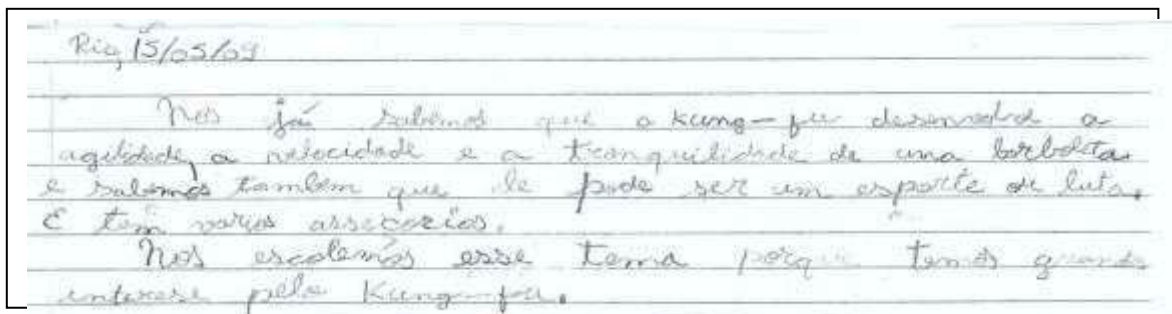 Rio, 15/05/09
Nos já sabemos que o kung-fu desenvolve a
agilidade, a velocidade e a tranquilidade de uma borboleta
e sabemos também que ele pode ser um esporte de luta.
E tem varios assecorios.
Nos escolemos esse tema porque temos grande
interese pelo Kung-fu.